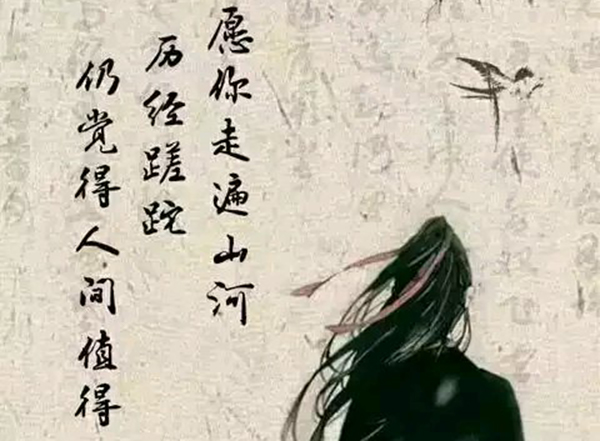 愿你走遍山河
历经蹉跎
仍觉得人间值得